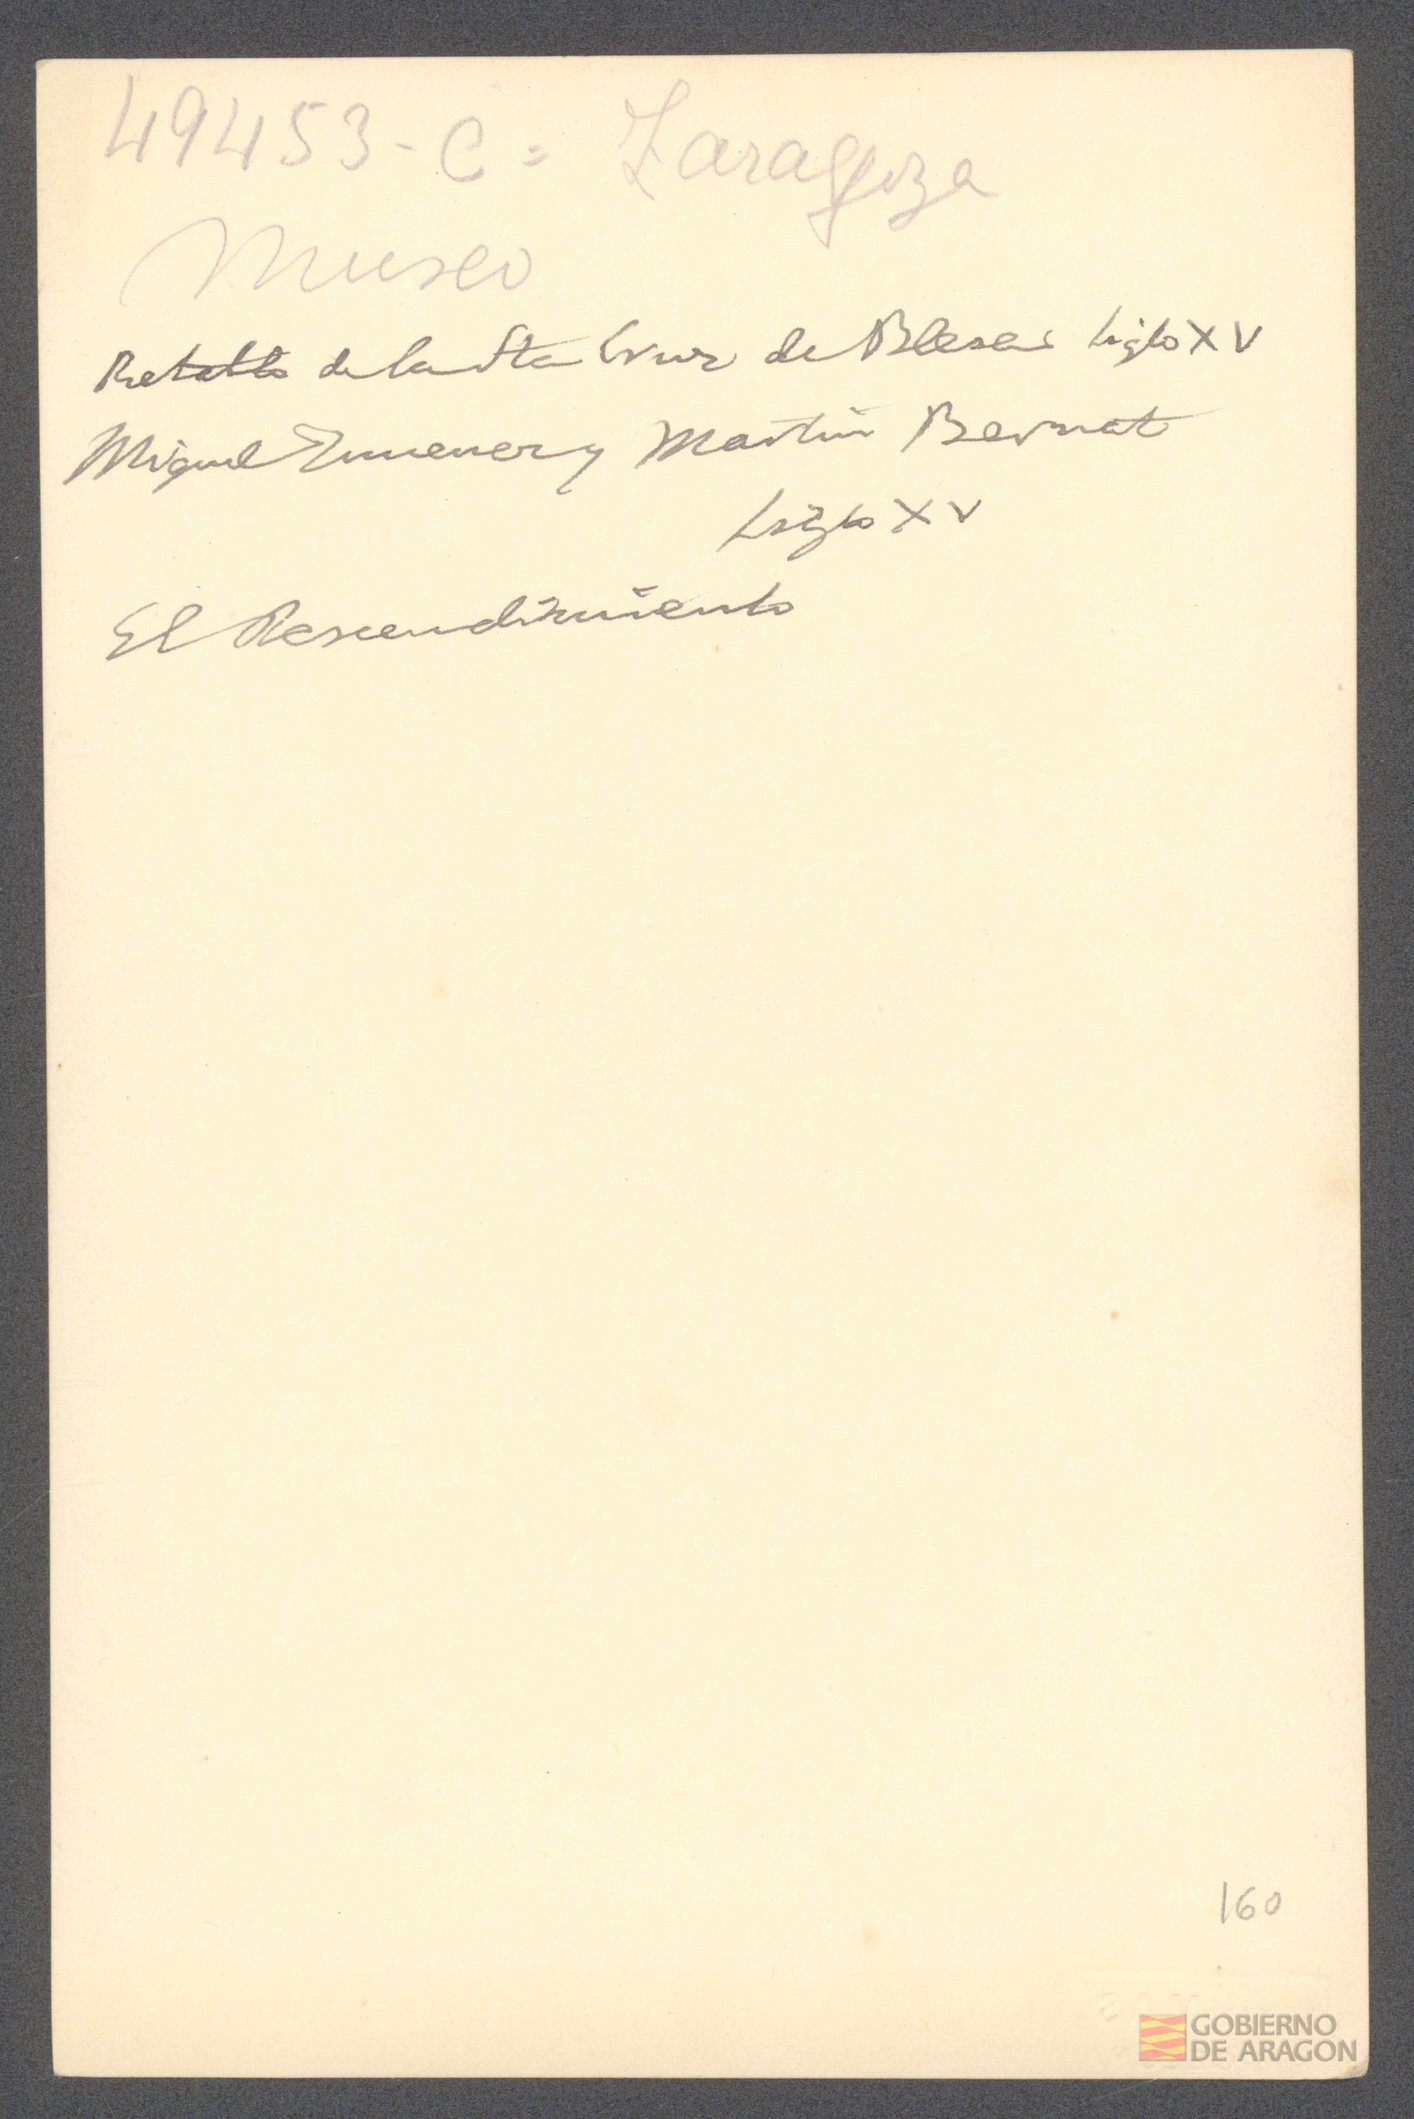 49453-C = Zaragoza
Museo
Retablo de la Sta Cruz de Blesa Siglo XV
Miguel Jimenez y Martin Bernat
Siglo XV
El Descendimiento
160
GOBIERNO
DE ARAGON